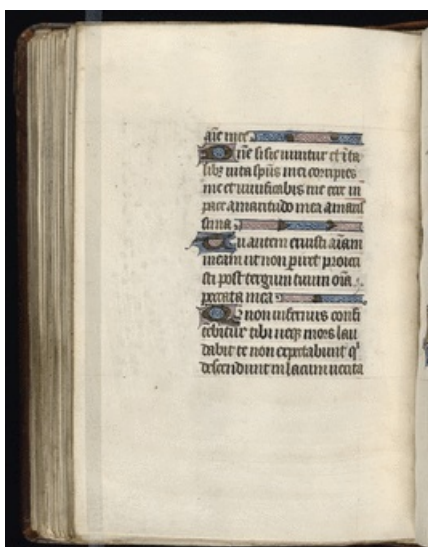 aīe mee
Dn̄e si sic vivitur et ī ta
libꝫ vita sp̄us mei corripies
me et vivificabis me ecce in
pace amaritudo mea amaris
sima
Tu autem eruisti aīam
meam ut non piret proieci
sti post tergum tuum oīa
peccata mea
Q non infernus confi
tebitur tibi neqꝫ mors lau
dabit te non expectabunt qͥ
descendunt in lacum verita